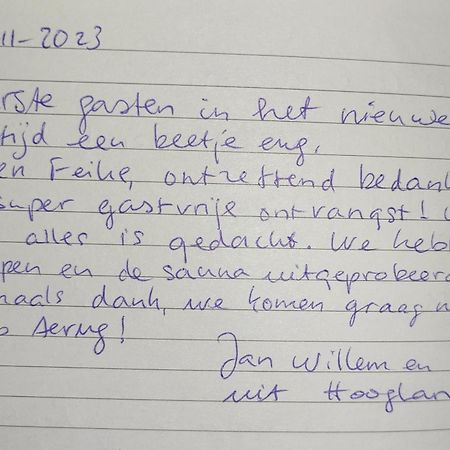 11-2023
rste gasten in het nieuwe
tijd een beetje eng,
en Feike, ontzettend bedank
super gastvrije ontvangst!
alles is gedacht. We heb
pen en de sauna uitgeprobeerd
maals dank, we komen graag
terug!
Jan Willem en
uit Hooglan